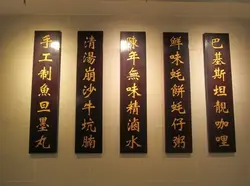 巴基斯坦靚咖哩
鮮味蚝餅蚝仔粥
陳年無味精滷水
清湯崩沙牛坑腩
手工制魚旦墨丸